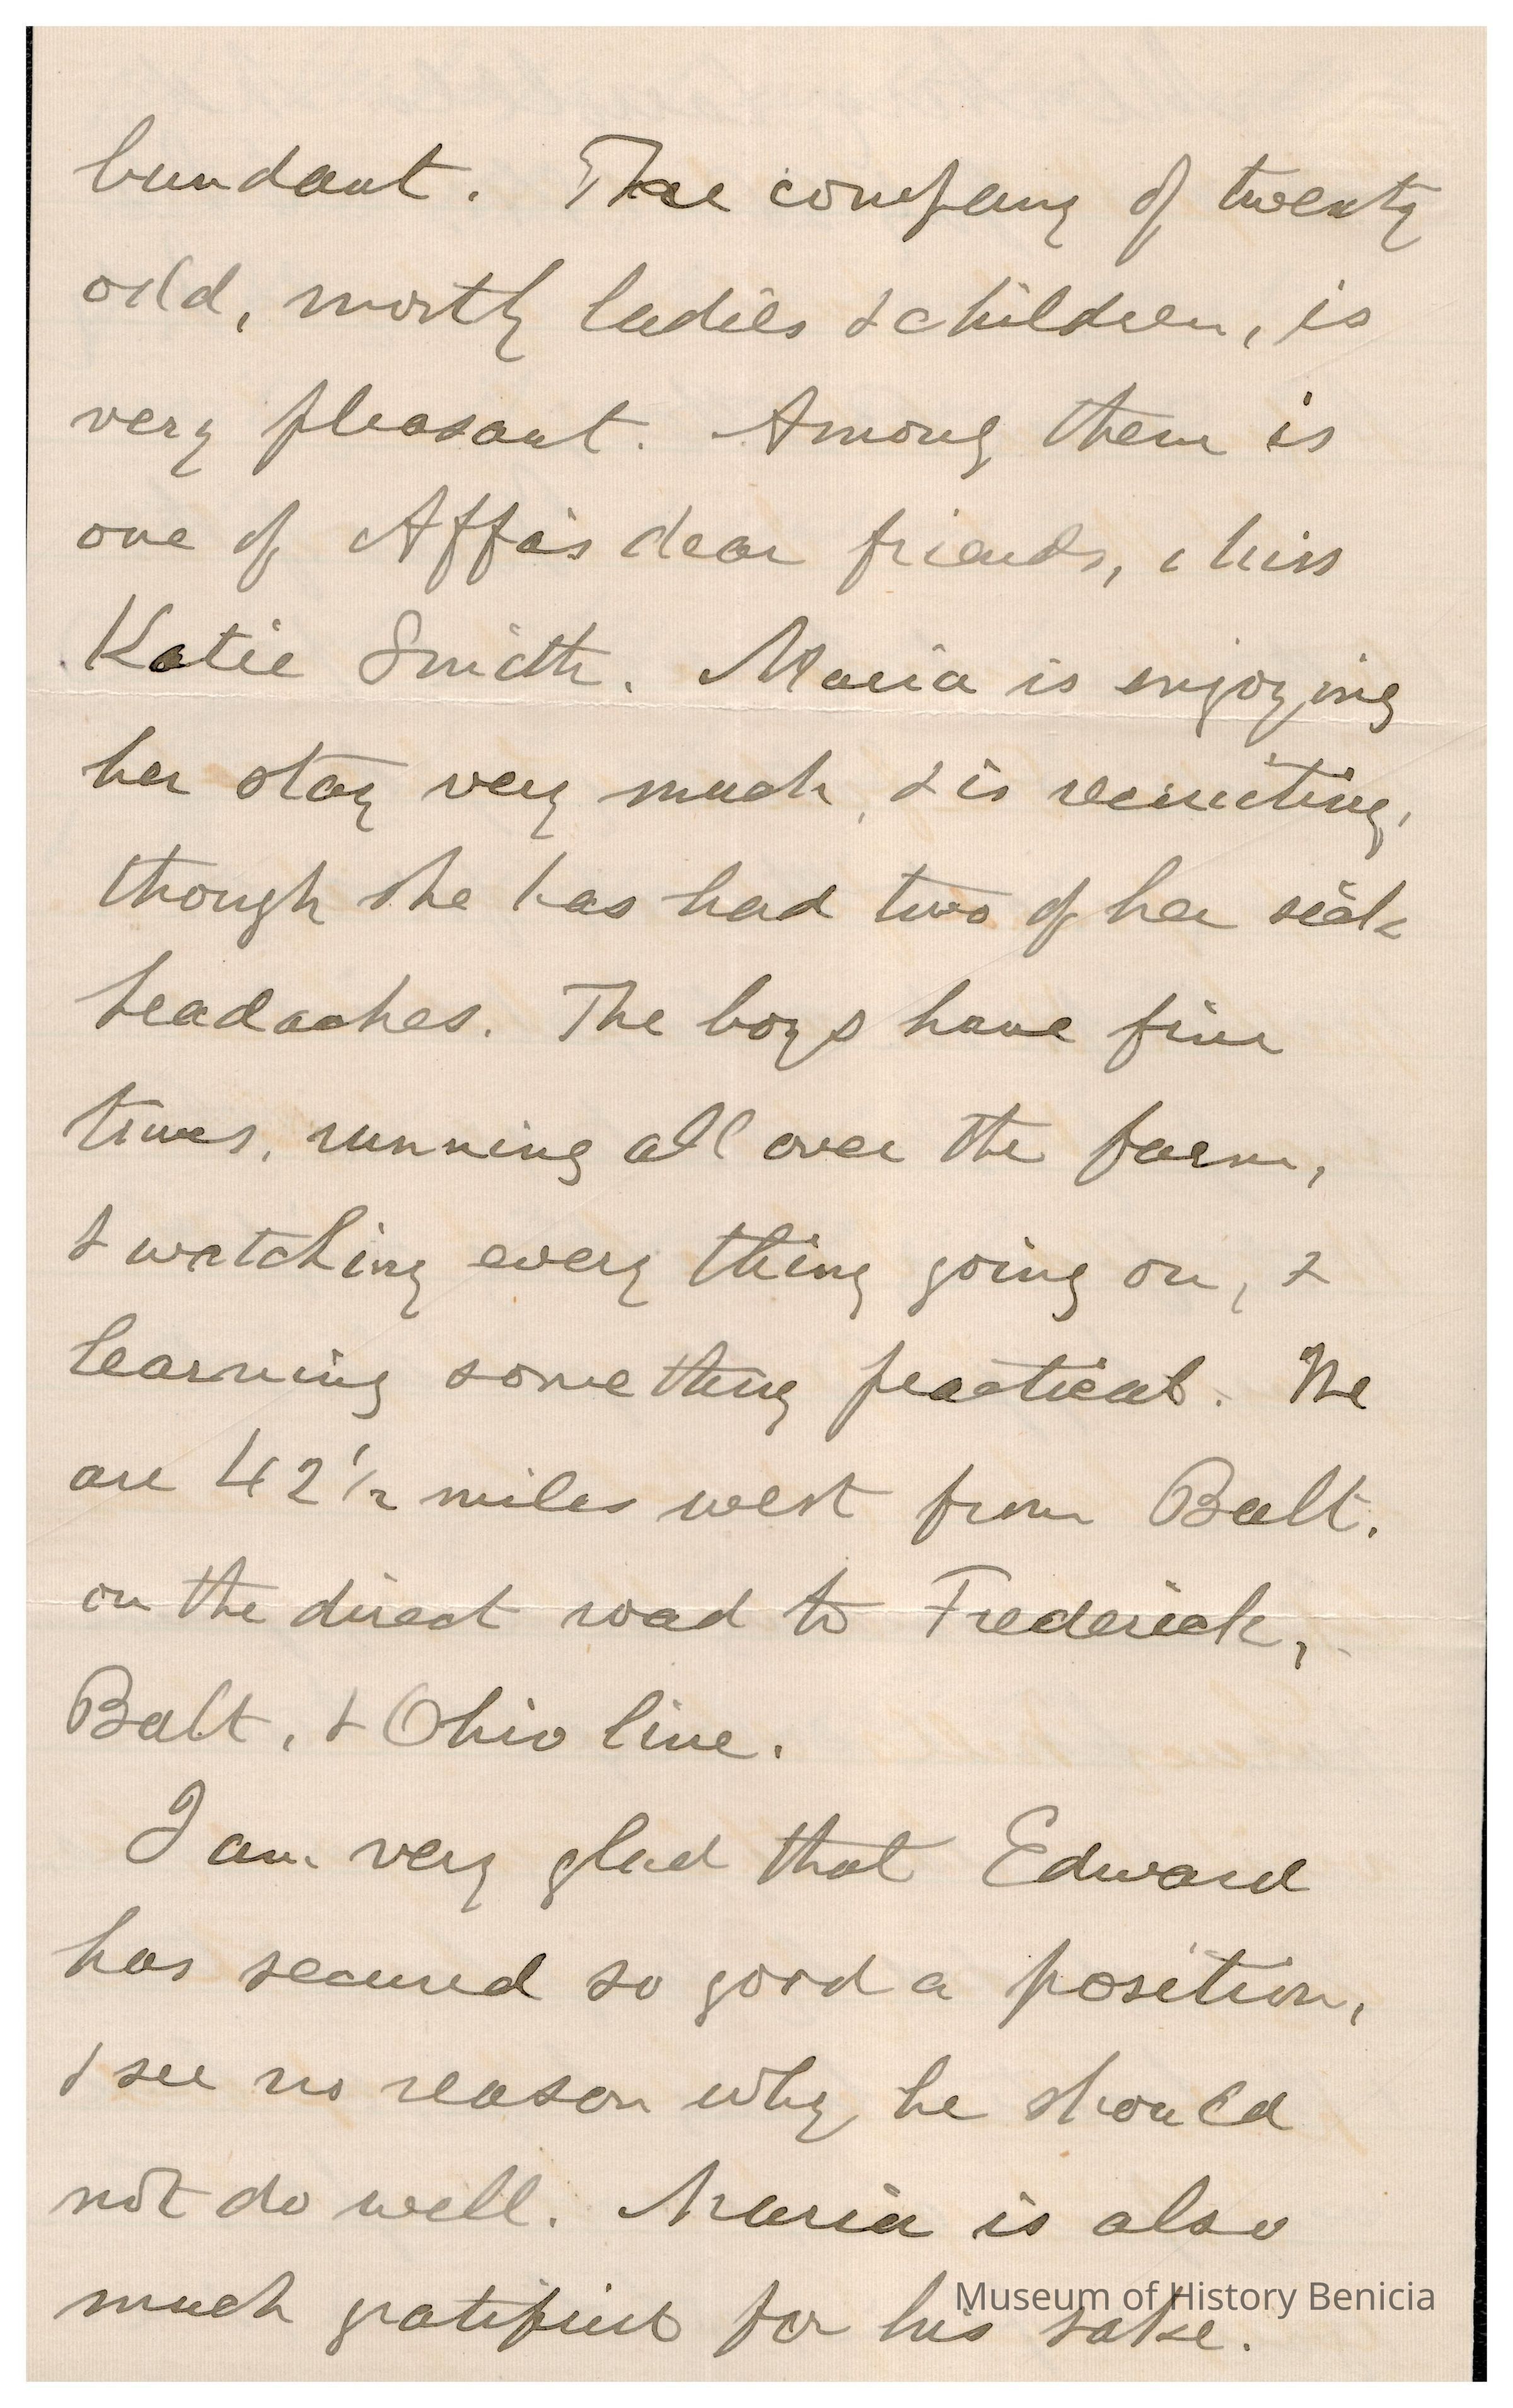 bundant. The company of twenty
odd, mostly ladies & children, is
very pleasant. Among them is
one of Affa's dear friends, Miss
Katie Smith. Maria is enjoying
her stay very much, & is recruiting,
though she has had two of her sick
headaches. The boys have fine
times, running all over the farm,
& watching every thing going on, &
learning something practical. We
are 42 1/2 miles west from Balt.
on the direct road to Frederick,
Balt. & Ohio line.
I am very glad that Edward
has secured so good a position,
I see no reason why he should
not do well. Maria is also
much gratified for his sake.
Museum of History Benicia